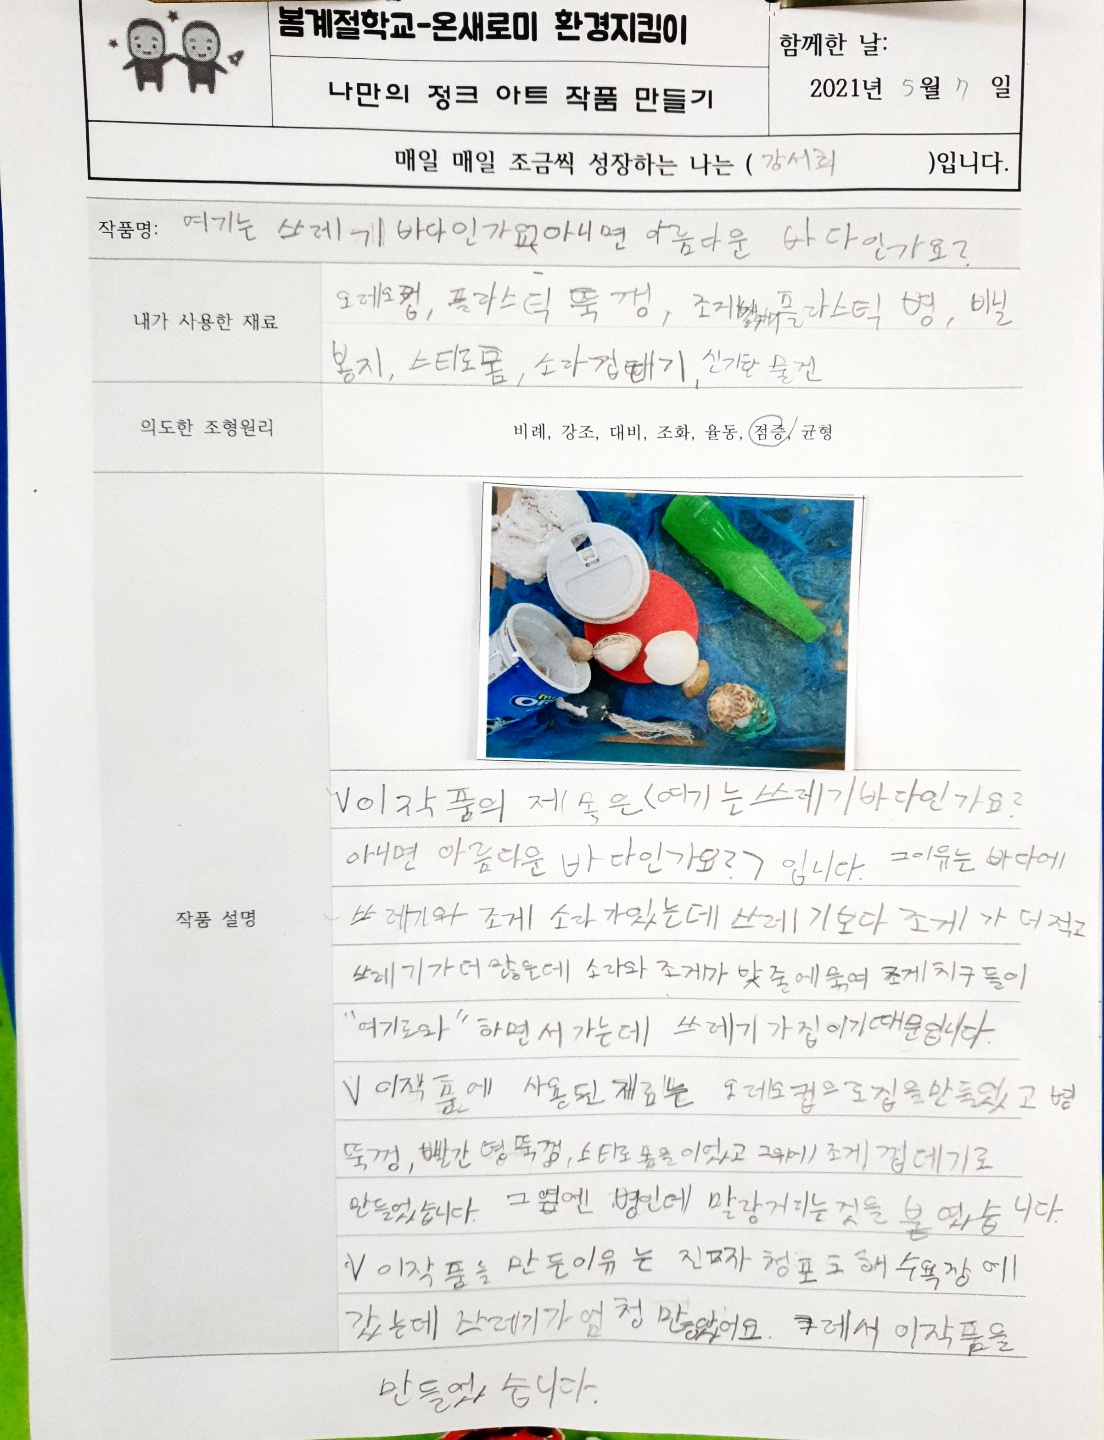 봄계절학교-온새로미 환경지킴이
함께한 날:
나만의 정크 아트 작품 만들기
2021년 5월 7 일
매일 매일 조금씩 성장하는 나는 ( 강서희 )입니다.
작품명: 여기는 쓰레기 바다인가요 아니면 아름다운 바다인가요?
내가 사용한 재료
오레오컵, 플라스틱 뚜껑, 조개 플라스틱 병, 비닐
봉지, 스티로폼, 소라껍태기, 신기한 물건
의도한 조형원리
비례, 강조, 대비, 조화, 율동, 점증, 균형
작품 설명
V이작품의 제목은<여기는쓰레기바다인가요?
아니면 아름다운 바다인가요?> 입니다. 그이유는 바다에
쓰레기와 조게 소라가있는데 쓰레기보다 조게가 더 적고
쓰레기가더 많은데 소라와 조게가 밧줄에묶여 조게친구들이
"여기로와" 하면서가는데 쓰레기가집이기때문입니다.
V 이작품에 사용된 재료는 오레오컵으로집을만들었고 병
뚜껑, 빨간 병뚜껑, 스티로폼을이었고 그위에 조게껍데기로
만들었습니다. 그옆엔 병인데 말랑거리는것들 붙였습니다.
V 이작품을 만든이유는 진짜 청포도해수욕장에
갔는데 쓰레기가 엄청 만았어요. 그레서 이작품을
만들었습니다.